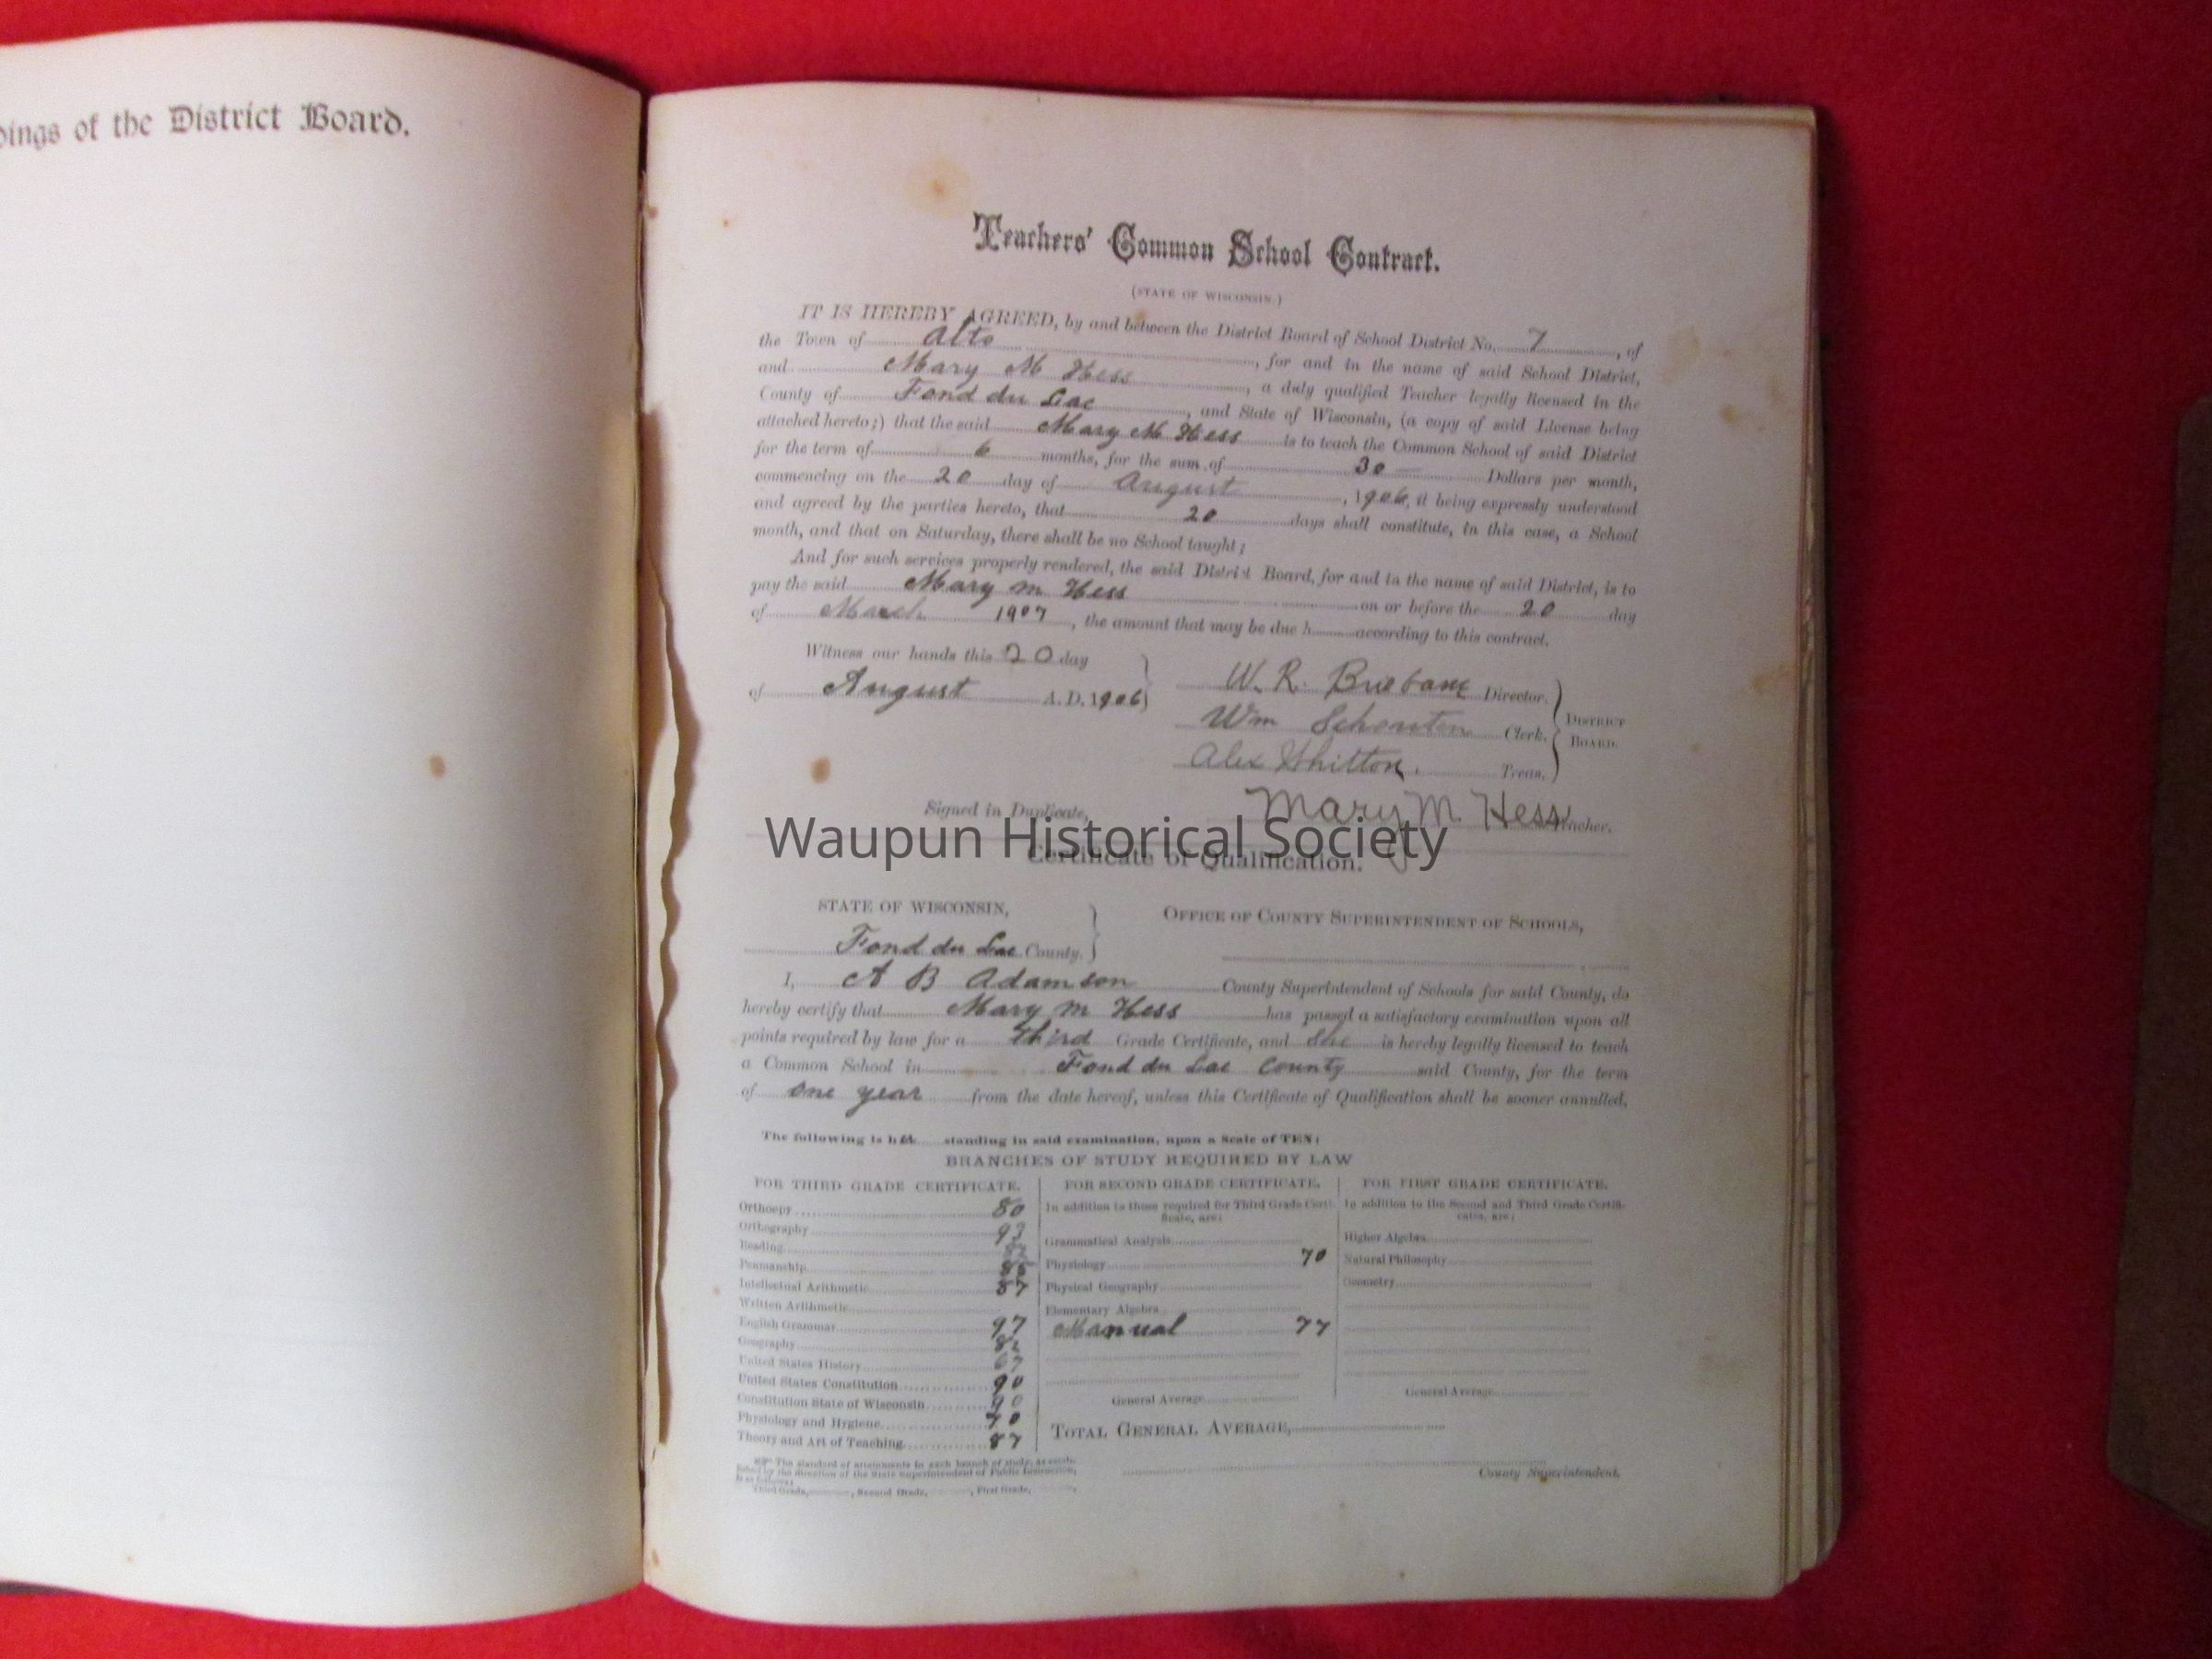 dings of the District Board.
Teachers' Common School Contract.
(STATE OF WISCONSIN.)
IT IS HEREBY AGREED, by and between the District Board of School District No. 7, of
the Town of Alto, for and in the name of said School District,
and Mary M Hess, a duly qualified Teacher legally licensed in the
County of Fond du Lac, and State of Wisconsin, (a copy of said License being
attached hereto;) that the said Mary M Hess is to teach the Common School of said District
for the term of 6 months, for the sum of 30 Dollars per month,
commencing on the 20 day of August, 1906, it being expressly understood
and agreed by the parties hereto, that 20 days shall constitute, in this case, a School
month, and that on Saturday, there shall be no School taught;
And for such services properly rendered, the said District Board, for and in the name of said District, is to
pay the said Mary M Hess on or before the 20 day
of March 1907, the amount that may be due h according to this contract.
Witness our hands this 20 day
of August A. D. 1906
W. R. Director.
Wm Schouten Clerk.
Alex Whitton. Treas.
DISTRICT BOARD.
Signed in Duplicate,
Mary M. Hess Teacher.
Waupun Historical Society
Certificate of Qualification.
STATE OF WISCONSIN,
Fond du Lac County.
OFFICE OF COUNTY SUPERINTENDENT OF SCHOOLS,
I, A B Adamson County Superintendent of Schools for said County, do
hereby certify that Mary M Hess has passed a satisfactory examination upon all
points required by law for a third Grade Certificate, and she is hereby legally licensed to teach
a Common School in Fond du Lac County said County, for the term
of one year from the date hereof, unless this Certificate of Qualification shall be sooner annulled.
The following is her standing in said examination, upon a Scale of TEN:
BRANCHES OF STUDY REQUIRED BY LAW
FOR THIRD GRADE CERTIFICATE.
Orthoepy 80
Orthography 93
Reading
Penmanship
Intellectual Arithmetic 87
Written Arithmetic
English Grammar 97
Geography
United States History 67
United States Constitution 90
Constitution State of Wisconsin 90
Physiology and Hygiene 70
Theory and Art of Teaching 87
The standard of attainments in each branch of study, as estab-
lished by the direction of the State Superintendent of Public Instruction,
is as follows:
Third Grade, , Second Grade, , First Grade, ,
FOR SECOND GRADE CERTIFICATE.
In addition to those required for Third Grade Certi-
ficate, are:
Grammatical Analysis
Physiology 70
Physical Geography
Elementary Algebra
Manual 77
General Average
TOTAL GENERAL AVERAGE,
FOR FIRST GRADE CERTIFICATE.
In addition to the Second and Third Grade Certifi-
cates, are:
Higher Algebra
Natural Philosophy
Geometry
General Average
County Superintendent.